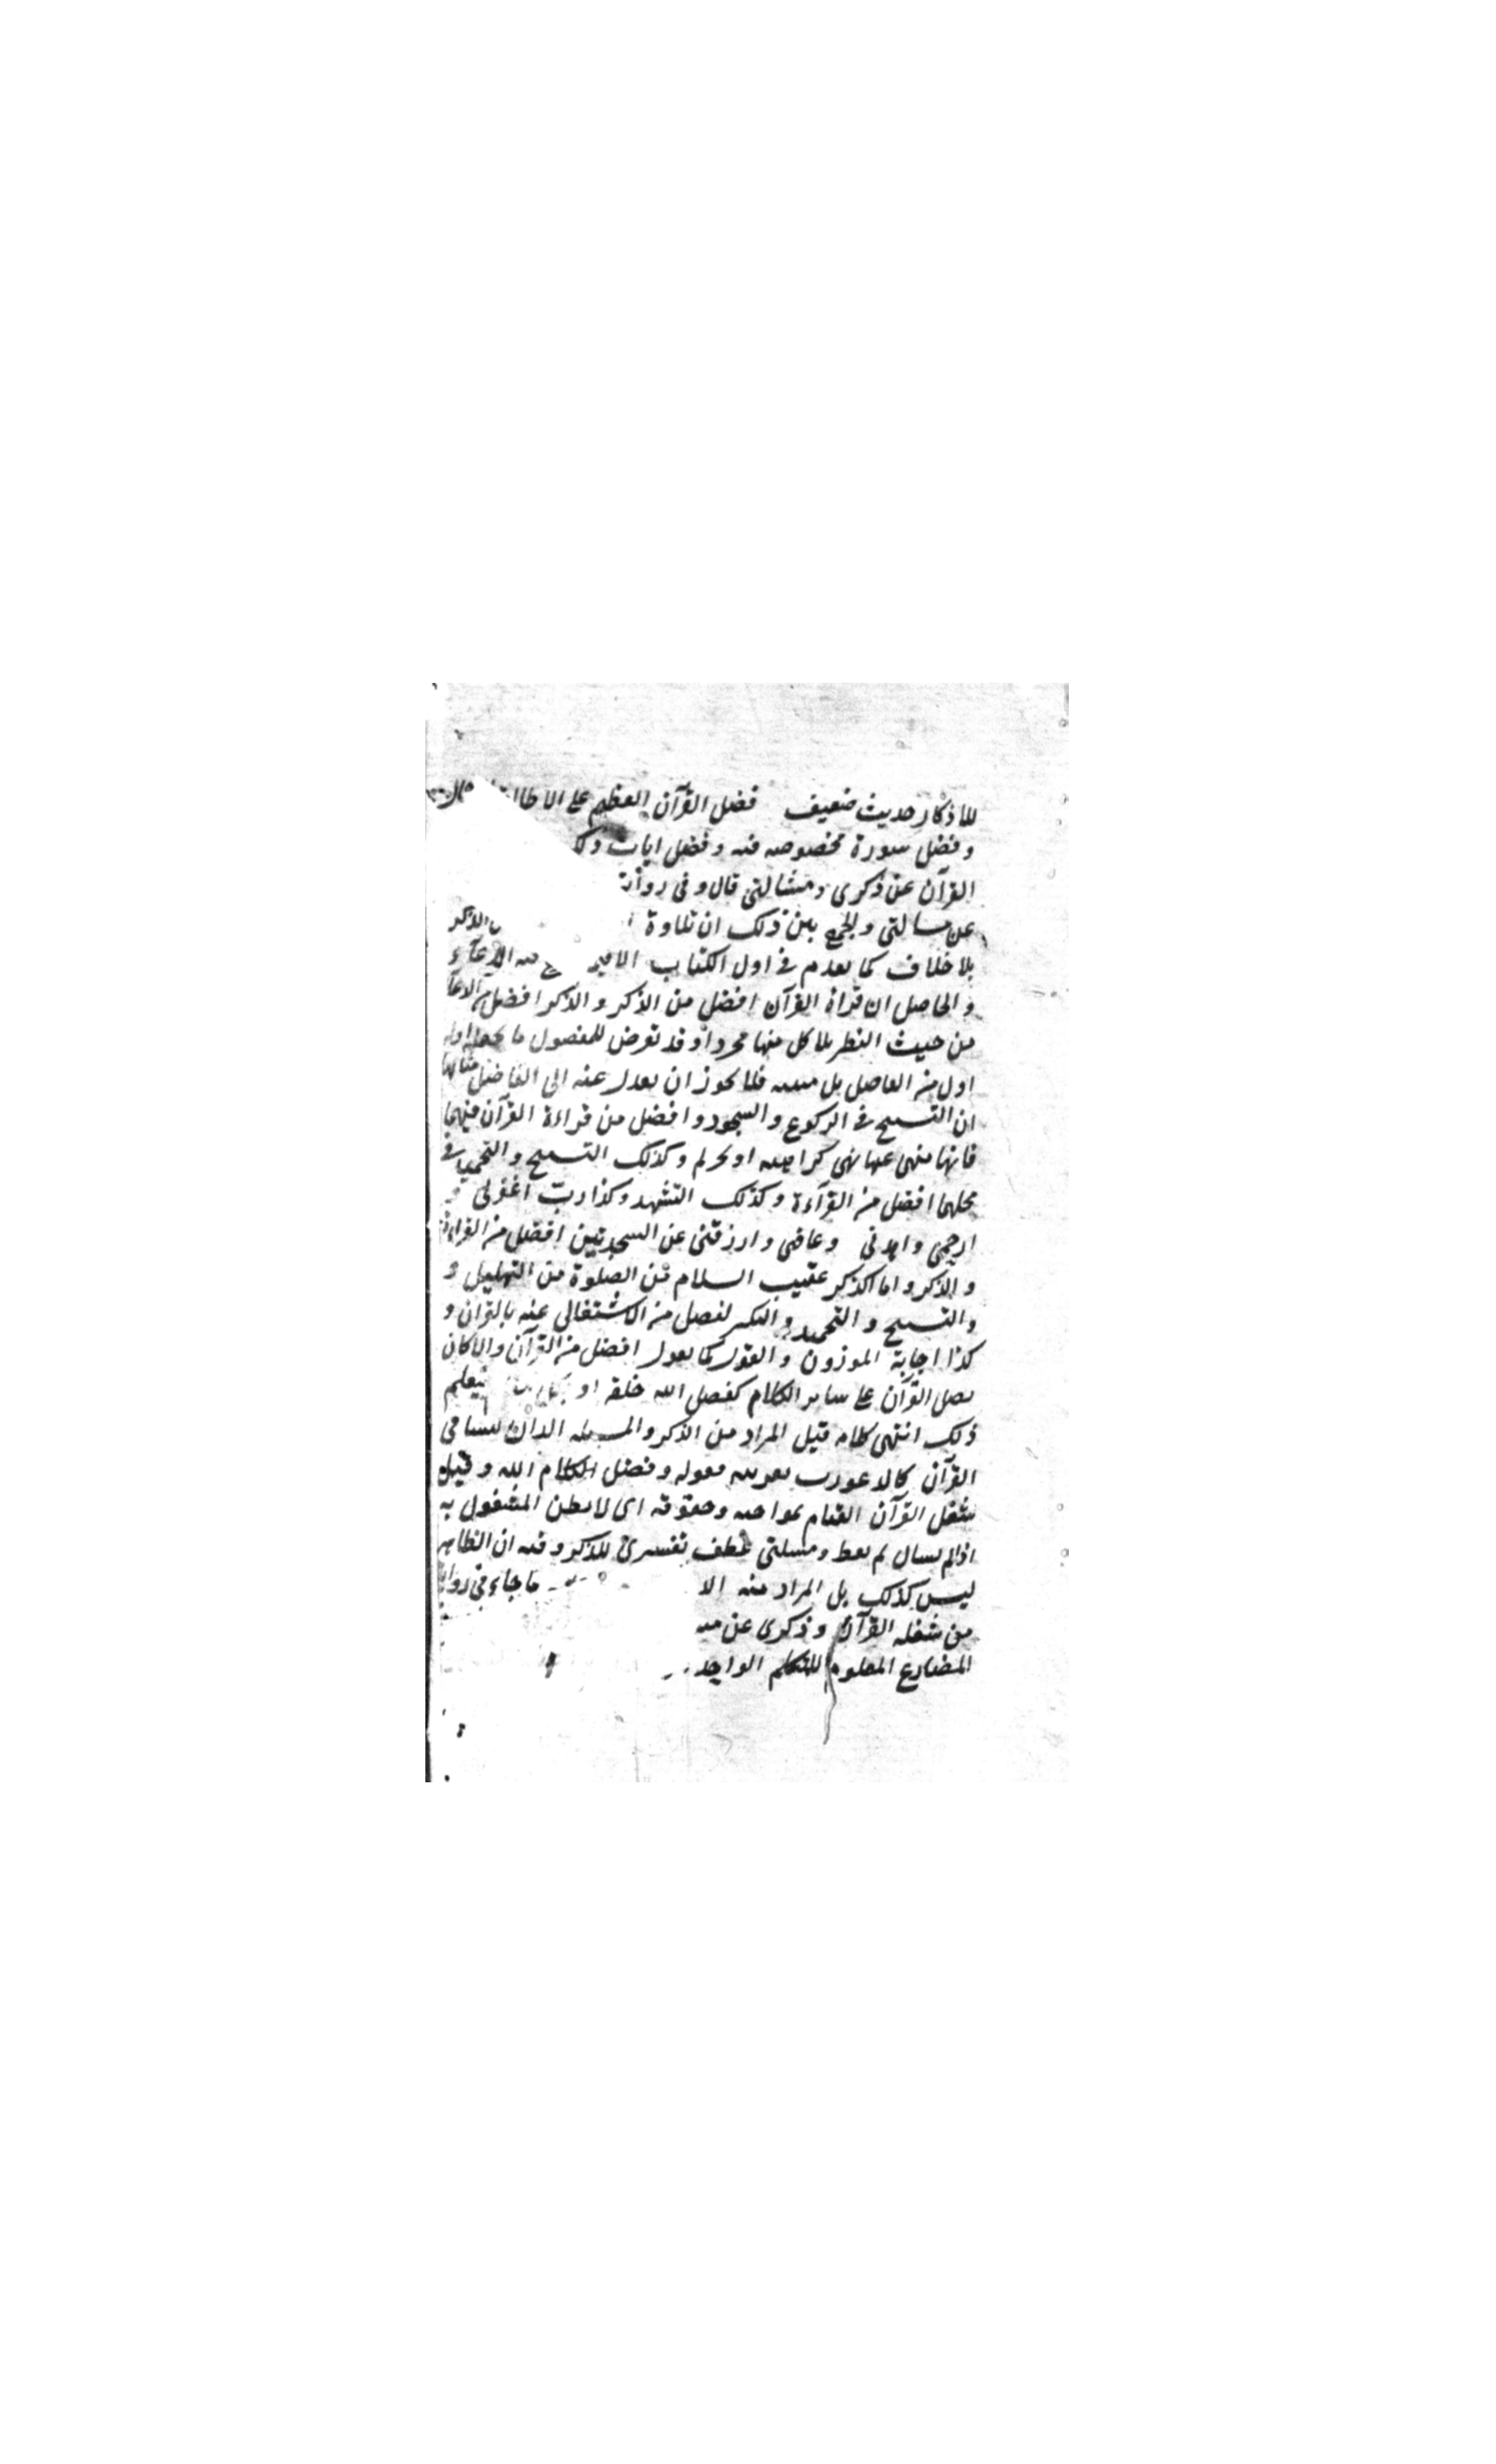 للاذكار حديث ضعيف فضل القرآن العظيم على الاطلاق
وفضل سورة مخصوصه فيه وفضل ايات
القرآن عن ذكرى ومسئالتى قال وفى رواية
عن مسالتى والجمع بين ذلك ان تلاوة الذكر
بلا خلاف كما تقدم فى اول الكتاب من الدعآء
والحاصل ان قرأة القرآن افضل من الذكر والذكر افضل من الدعآ
من حيث النظر لكل منها مجردا وقد تعرض للمفضول ما يجعله
اولى من الفاضل بل فلا يجوز ان يعدل عنه الى الفاضل مثالها
ان التسبيح فى الركوع والسجود افضل من قراءة القرآن فيهما
فانها منهى عنها نهى كراهيه او تحريم وكذلك التسبيح والتحميد فى
محلهما افضل من القرآءة وكذلك التشهد وكذا رب اغفرلى و
ارحمنى واهدنى وعافنى وارزقنى عن السجدتين افضل من القراءة
والذكر واما الذكر عقيب السلام من الصلوة من التهليل و
والتسبيح والتحميد والتكبير افضل من الاشتغال عنه بالقران و
كذا اجابة الموزون والقول كما يقول افضل من القرآن والاكان
فضل القرآن على ساير الكلام كفضل الله خلقه
ذلك انتهى كلامه قيل المراد من الذكر والمسئله الذان ليسا فى
القرآن كالدعورب بقوله وفضل الكلام الله وقيل
شغل القرآن القيام بمواجبه وحقوقه اى لا يظن المشغول به
اذالم يسال لم يعط ومسلتى عطف تفسرى للذكر وفيه ان الظاهر
ليس كذلك بل المراد منه ما جاء فى رواية
من شغله القرآن وذكرى عن
المضارع المعلوم للمتكلم الواحد